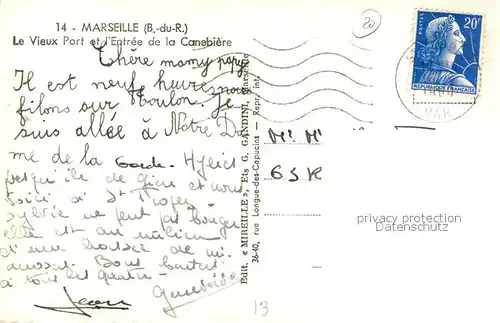 14 - MARSEILLE (B.-du-R.)
Le Vieux Port et l'Entrée de la Canebière
Chère mamy papy
Il est neuf heures nous
filons sur Toulon. Je
suis allée à Notre Da
me de la Garde. Hyères
presqu'ile de Gien et nous
voici à St Tropez
Sylvie ne peut pas bouger
elle est au milieu
d'une
Bons baisers
à tous les quatre
Jean
Geneviève
Edit. « MIREILLE », Ets G. GANDINI, Marseille
36-40, rue Longue-des-Capucins — Repr. int.
20
POSTES
20F
REPUBLIQUE FRANÇAISE
VAR
63K
13
privacy protection
Datenschutz